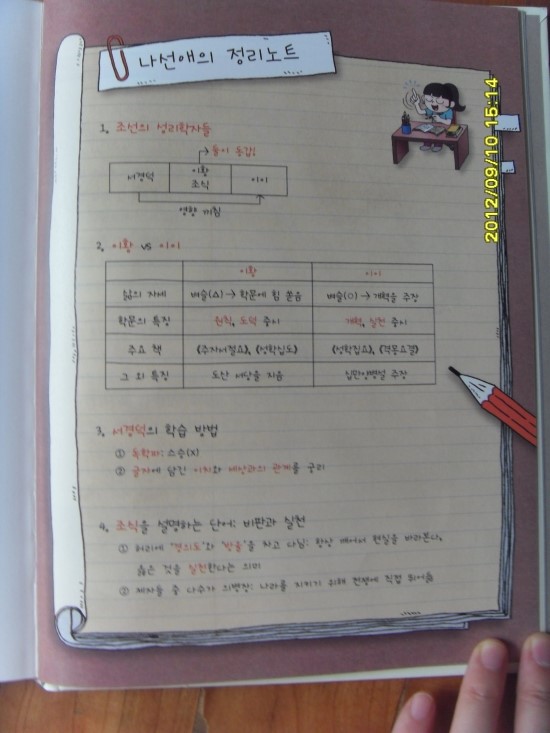 나선애의 정리노트
1. 조선의 성리학자들
둘이 동갑!
서경덕 이황 조식 이이
영향 끼침
2. 이황 vs 이이
이황 이이
삶의 자세 벼슬(△)→학문에 힘 쏟음 벼슬(○)→개혁을 주장
학문의 특징 원칙, 도덕 중시 개혁, 실천 중시
주요 책 《주자서절요》, 《성학십도》 《성학집요》, 《격몽요결》
그 외 특징 도산 서당을 지음 십만양병설 주장
3. 서경덕의 학습 방법
① 독학파: 스승(X)
② 글자에 담긴 이치와 세상과의 관계를 궁리
4. 조식을 설명하는 단어: 비판과 실천
① 허리에 '경의도'와 '방울'을 차고 다님: 항상 깨어서 현실을 바라본다,
옳은 것을 실천한다는 의미
② 제자들 중 다수가 의병장: 나라를 지키기 위해 전쟁에 직접 뛰어듦
2012/09/10 15:14